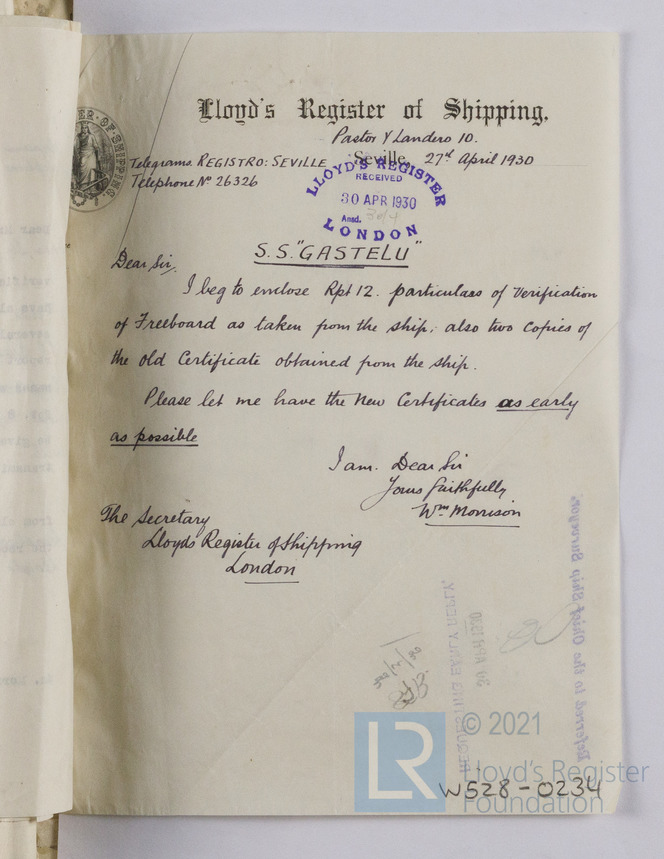 Lloyd's Register of Shipping,
Pastor Y Landero 10.
Telegrams. REGISTRO: SEVILLE Seville, 27th April 1930
Telephone No 26326
LLOYD'S REGISTER
RECEIVED
30 APR 1930
Ansd. 30/4
LONDON
S.S. "GASTELU"
Dear Sir,
I beg to enclose Rpt 12. particulars of Verification
of Freeboard as taken from the ship; also two Copies of
the old Certificate obtained from the ship.
Please let me have the New Certificates as early
as possible
I am. Dear Sir
Yours faithfully
Wm Morrison
The Secretary
Lloyds Register of Shipping
London
REQUESTING EARLY REPLY.
30 APR 1930
Referred to the Chief Ship Surveyor.
LR © 2021
Lloyd's Register
Foundation
W528-0234